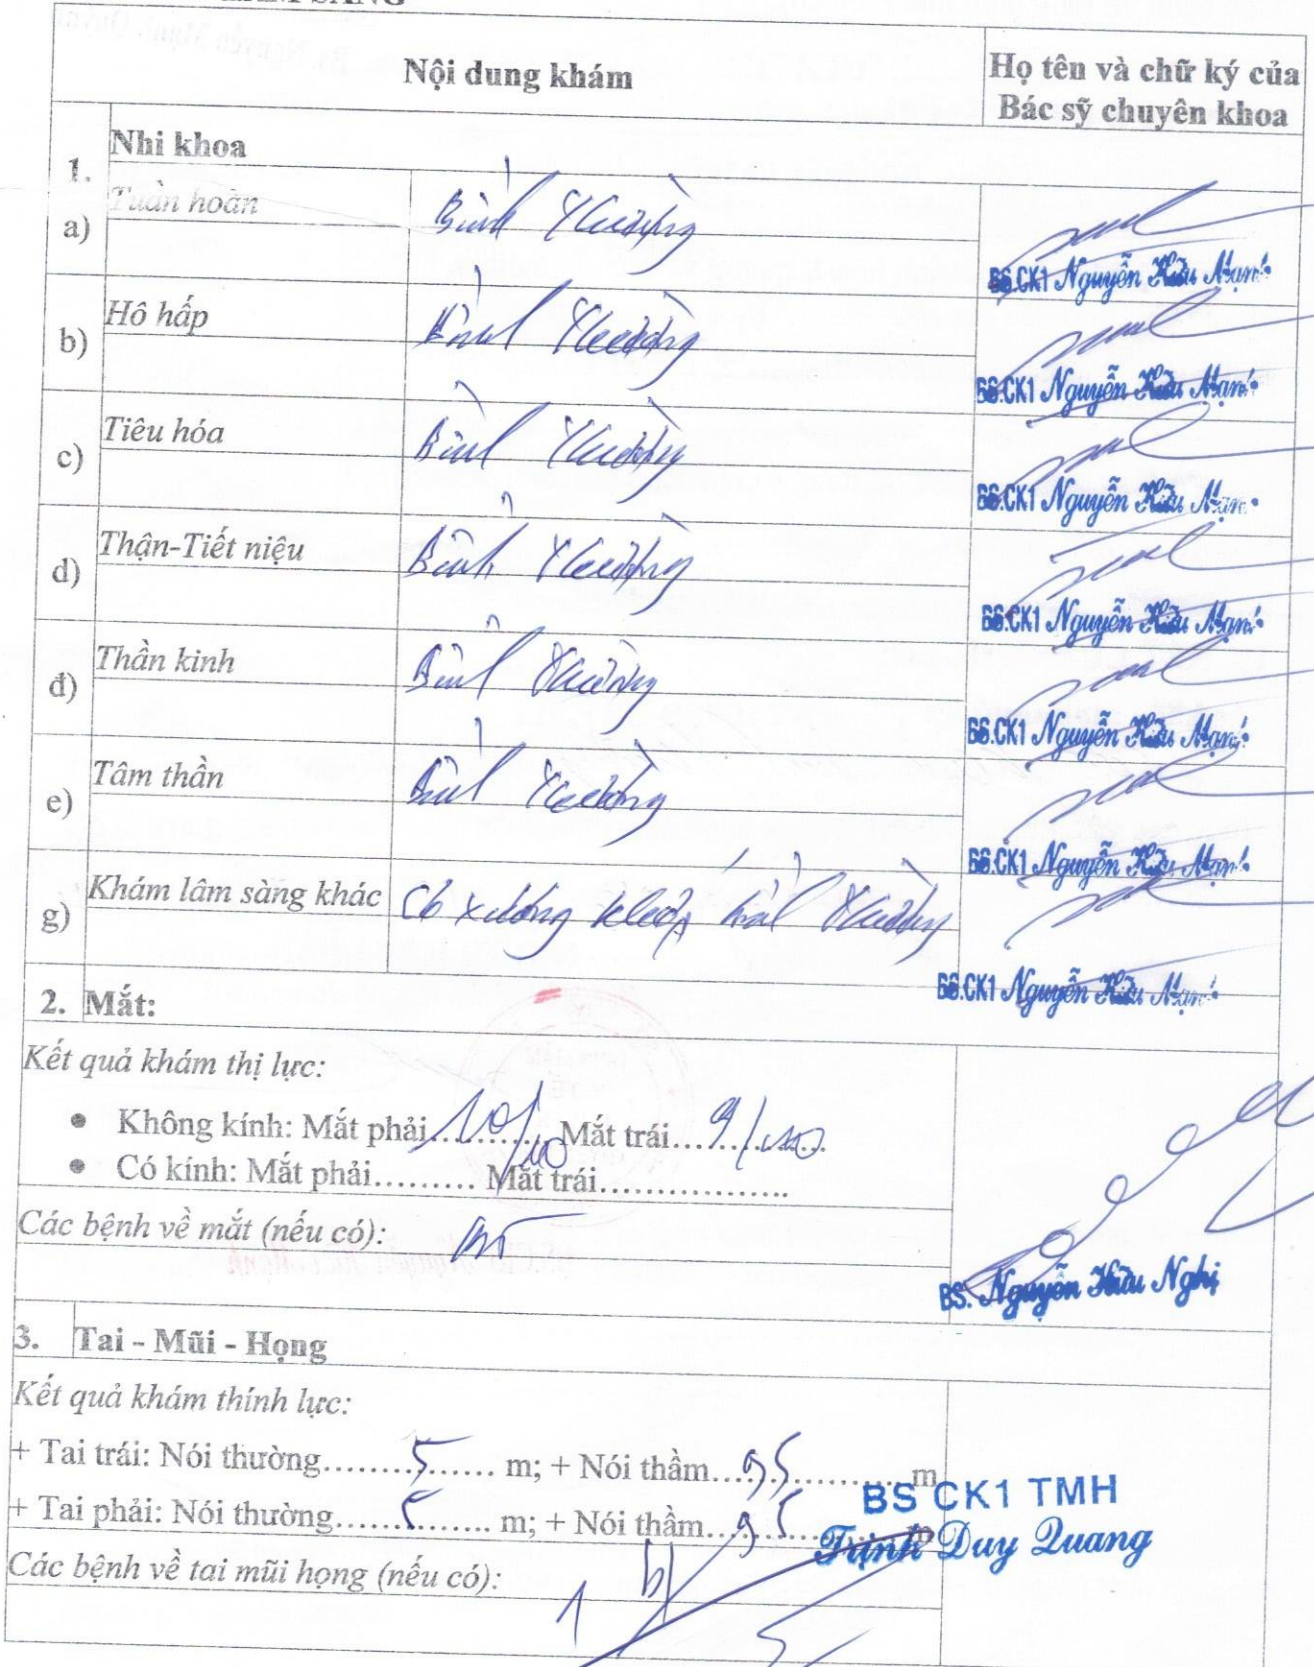 Nội dung khám
Họ tên và chữ ký của
Bác sỹ chuyên khoa
1. Nhi khoa
a) Tuần hoàn Bình thường
BS.CK1 Nguyễn Hữu Mạnh
b) Hô hấp Bình thường
BS.CK1 Nguyễn Hữu Mạnh
c) Tiêu hóa Bình thường
BS.CK1 Nguyễn Hữu Mạnh
d) Thận-Tiết niệu Bình thường
BS.CK1 Nguyễn Hữu Mạnh
đ) Thần kinh Bình thường
BS.CK1 Nguyễn Hữu Mạnh
e) Tâm thần Bình thường
BS.CK1 Nguyễn Hữu Mạnh
g) Khám lâm sàng khác Cơ xương khớp bình thường
BS.CK1 Nguyễn Hữu Mạnh
2. Mắt:
Kết quả khám thị lực:
• Không kính: Mắt phải 10/10 Mắt trái 9/10
• Có kính: Mắt phải......... Mắt trái..................
Các bệnh về mắt (nếu có): BT
BS. Nguyễn Hữu Nghị
3. Tai - Mũi - Họng
Kết quả khám thính lực:
+ Tai trái: Nói thường 5 m; + Nói thầm 0,5 m
+ Tai phải: Nói thường 5 m; + Nói thầm 0,5 m
BS CK1 TMH
Trịnh Duy Quang
Các bệnh về tai mũi họng (nếu có):